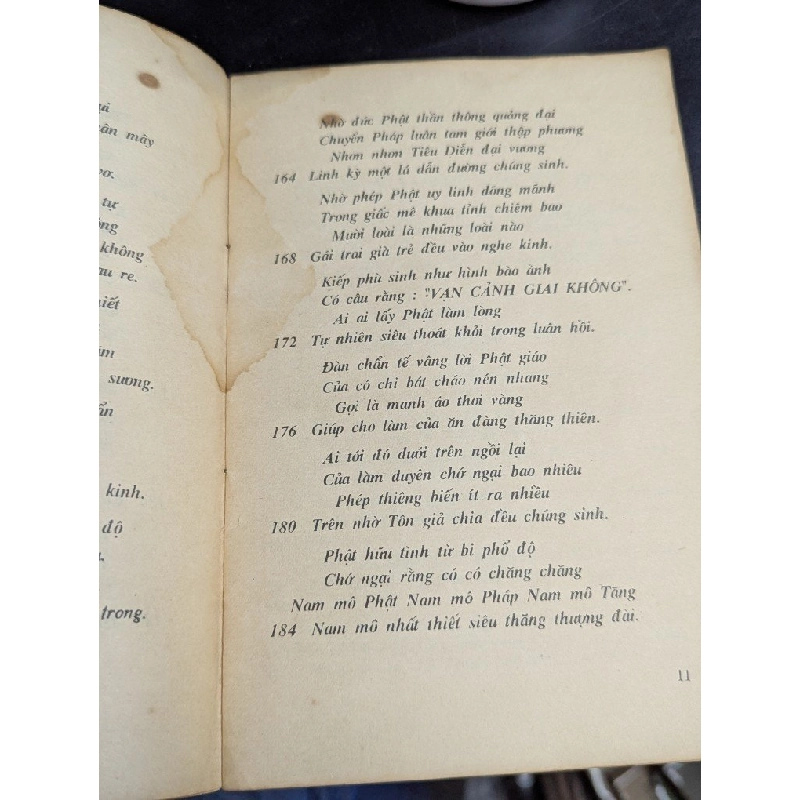 ại
ân mây
ơ.
tự
ông
không
au re.
iết
sương.
ẩn
kinh.
độ
trong.
Nhờ đức Phật thần thông quảng đại
Chuyển Pháp luân tam giới thập phương
Nhơn nhơn Tiêu Diễn đại vương
164 Linh kỳ một lá dẫn đường chúng sinh.
Nhờ phép Phật uy linh dõng mãnh
Trong giấc mê khua tỉnh chiêm bao
Mười loài là những loài nào
168 Gái trai già trẻ đều vào nghe kinh.
Kiếp phù sinh như hình bào ảnh
Có câu rằng : "VẠN CẢNH GIAI KHÔNG".
Ai ai lấy Phật làm lòng
172 Tự nhiên siêu thoát khỏi trong luân hồi.
Đàn chẩn tế vâng lời Phật giáo
Của có chi bát cháo nén nhang
Gọi là manh áo thoi vàng
176 Giúp cho làm của ăn đàng thăng thiên.
Ai tới đó dưới trên ngồi lại
Của làm duyên chớ ngại bao nhiêu
Phép thiêng biến ít ra nhiều
180 Trên nhờ Tôn giả chia đều chúng sinh.
Phật hữu tình từ bi phổ độ
Chớ ngại rằng có có chăng chăng
Nam mô Phật Nam mô Pháp Nam mô Tăng
184 Nam mô nhất thiết siêu thăng thượng đài.
11